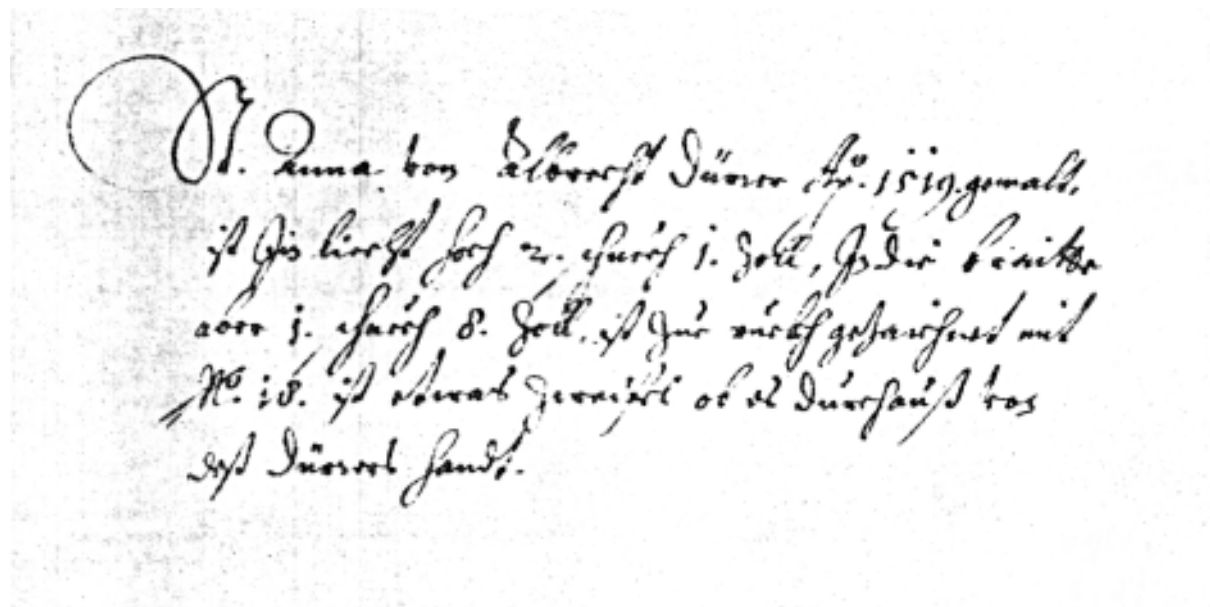 St. Anna von Albrecht Dürrer Ao. 1519. gemalt,
ist Im liecht hoch 2. schuech 1. Zoll, In die braitte
aber 1. schuech 8. Zoll, ist zue ruckh gezaichnet mit
N. 18. ist etwas zweifel ob es durchauß von
deß Dürrers handt.